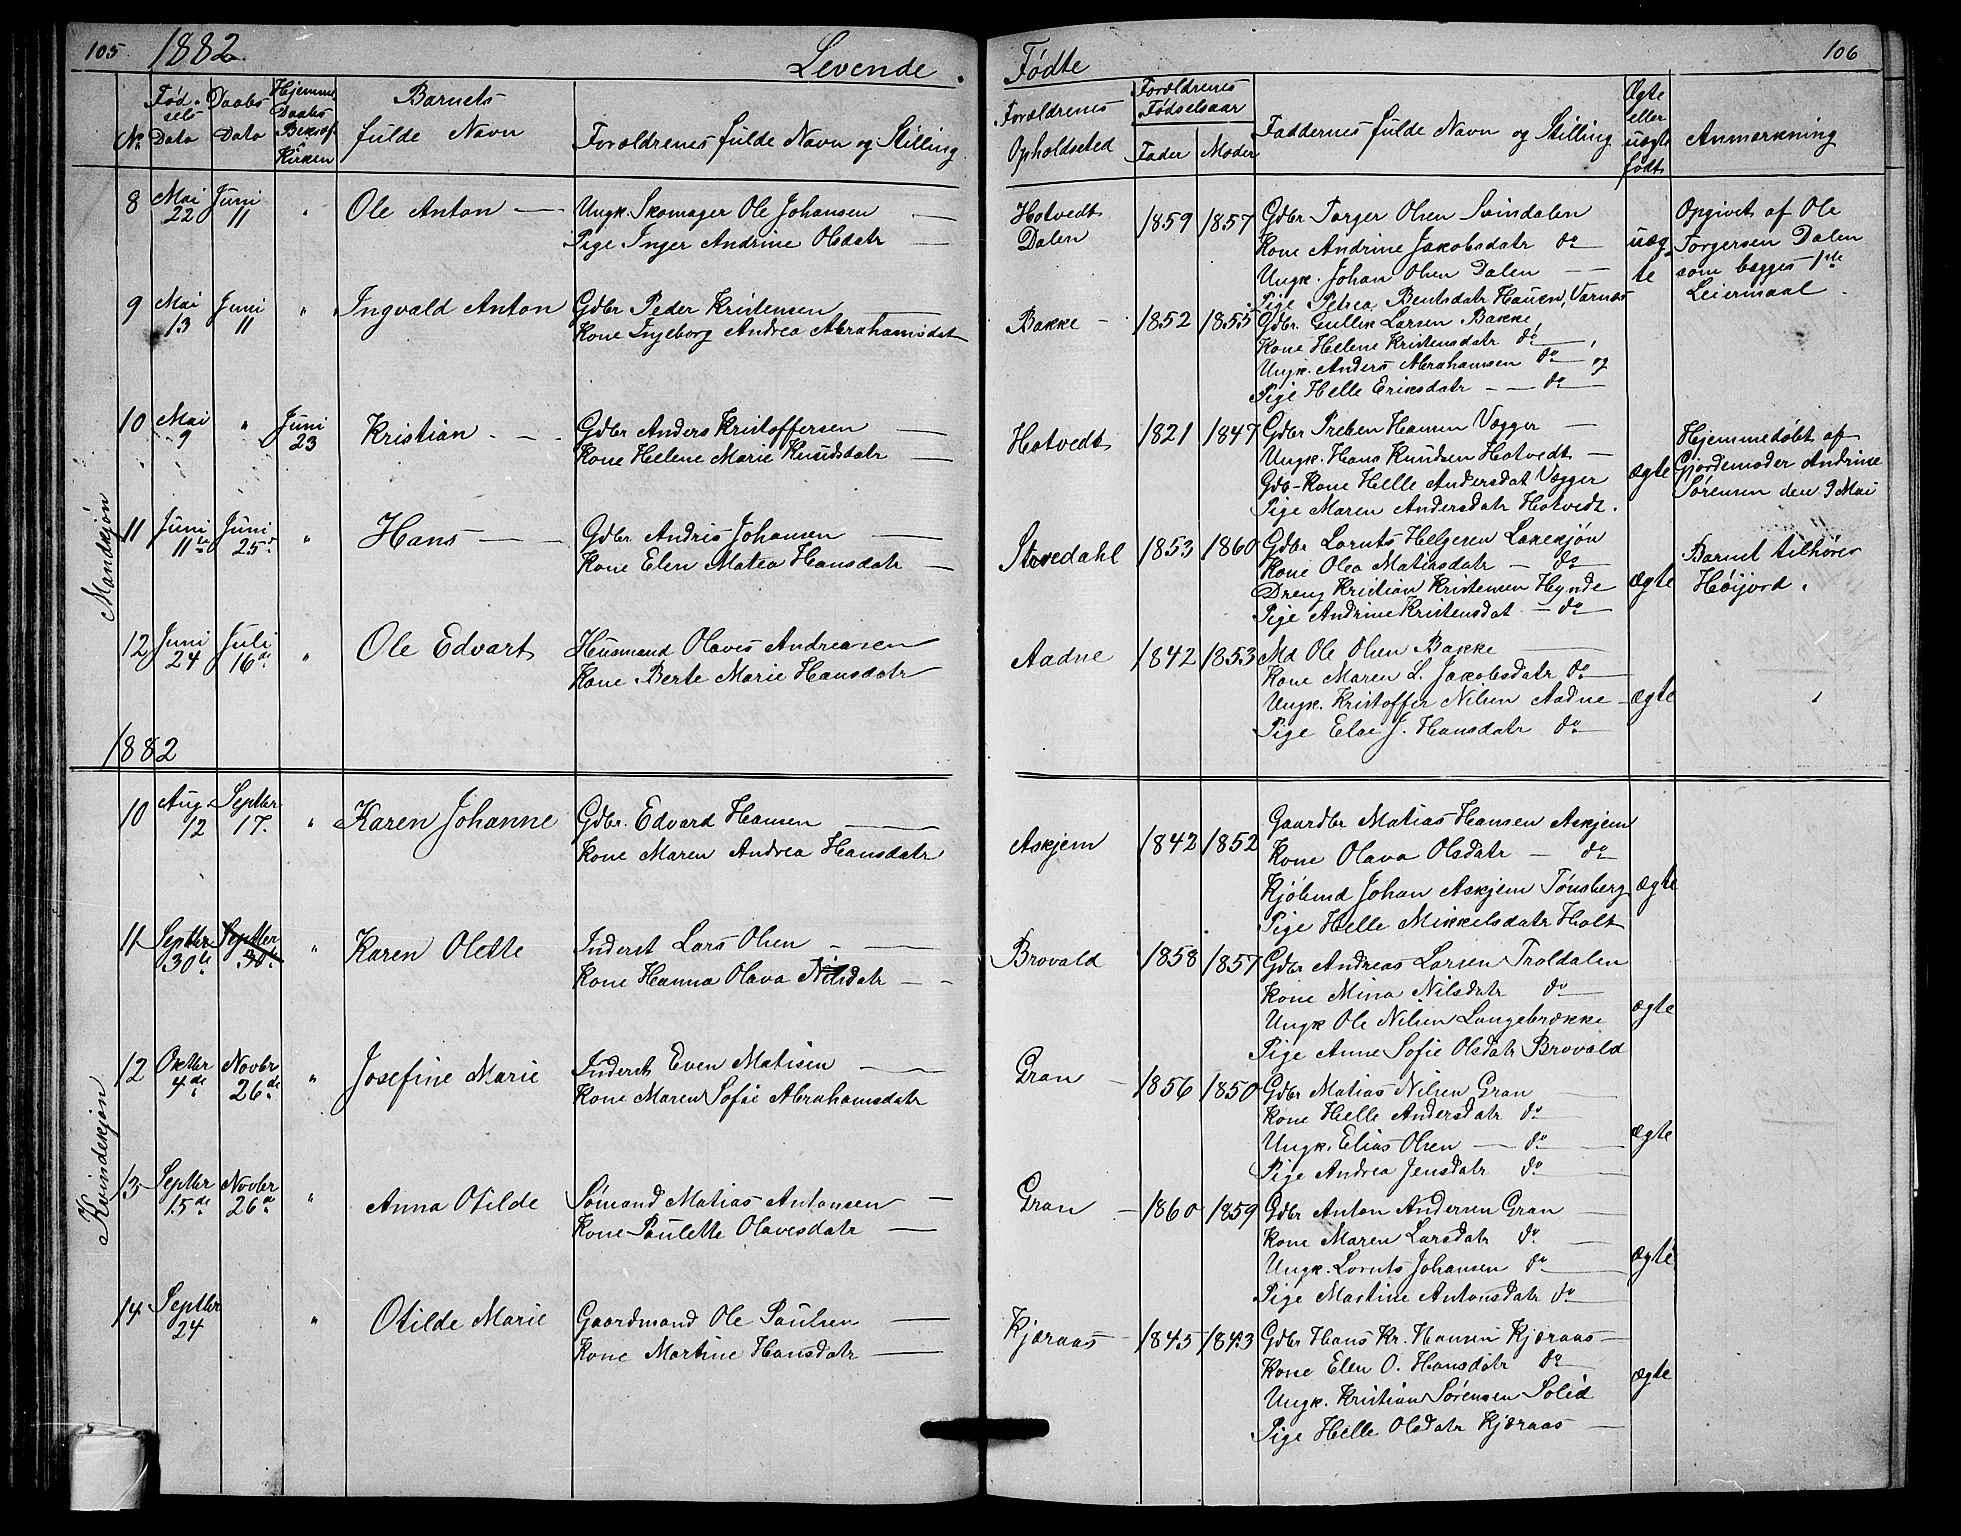 105 1882. Levende.
No Fødsels Dato Daabs Dato Hjemme Daabs Bekræf. i Kirken Barnets fulde Navn Forældrenes fulde Navn og Stilling
Mandkjøn
8 Mai 22 Juni 11 " Ole Anton — Ungk. Skomager Ole Johansen —
Pige Inger Andrine Olsdatr —
9 Mai 13 Juni 11 " Ingvald Anton Gdbr Peder Kristensen —
Kone Ingeborg Andrea Abrahamsdat
10 Mai 9 " Juni 23 Kristian - - Gdbr Anders Kristoffersen —
Kone Helene Marie Knudsdatr —
11 Juni 11te Juni 25d " Hans — — Gdbr Andris Johansen —
Kone Elen Matea Hansdatr —
12 Juni 24 Juli 16de " Ole Edvart Husmand Olaves Andreasen
Kone Berte Marie Hansdatr
1882
Kvindekjøn
10 Aug 12 Septbr 17. " Karen Johanne Gdbr. Edvard Hansen —
Kone Maren Andrea Hansdatr
11 Septbr 30te Septbr 30te " Karen Olette Inderst Lars Olsen - —
Kone Hanna Olava Nilsdatr - -
12 Oktbr 4de Novbr 26de " Josefine Marie Inderst Even Matisen —
Kone Maren Sofie Abrahamsdatr
13 Septbr 15de Novbr 26de " Anna Otilde Sømand Matias Antonsen —
Kone Paulette Olavesdatr —
14 Septbr 24 " Otilde Marie Gaardmand Ole Paulsen —
Kone Martine Hansdatr —
Fødte 106
Forældrenes Opholdsted Forældrenes Fødselsaar Fader Moder Faddernes fulde Navn og Stilling Ægte eller uægte født Anmerkning
Hotvedt Dalen 1859 1857 Gdbr Torger Olsen Svindalen
Kone Andrine Jakobsdatr do —
Ungk. Johan Olsen Dalen — —
Pige Petrea Bentsdatr Hauen, Varnæs
uægte
Opgivet af Ole
Torgersen Dalen
som begges 1ste
Leiermaal.
Bakke - 1852 1855 Gdbr. Gullik Larsen Bakke,
Kone Helene Kristensdatr do —,
Ungk. Anders Abrahamsen do — og
Pige Helle Eriksdatr - — do —
Hotvedt 1821 1847 Gdbr Preben Hansen Vegger —
Ungk. Hans Knudsen Hotvedt —
Gdb-Kone Helle Andersdat Vegger
Pige Maren Andersdatr Hotvedt.
ægte
Hjemmedøbt af
Gjordemoder Andrine
Sørensen den 9 Mai
Stovedahl 1853 1860 Gdbr Lornts Helgesen Lakskjøn
Kone Olea Matiasdatr — do
Dreng Kristian Kristensen Hynde
Pige Andrine Kristensdat — do —
ægte
Barnet tilhører
Høijord.
Aadne 1842 1853 Md Ole Olsen Bakke
Kone Maren L. Jakobsdatr do —
Ungk. Kristoffer Nilsen Aadne —
Pige Elae J. Hansdatr do —
ægte
Askjem 1842 1852 Gaardbr Matias Hansen Askjem
Kone Olava Olsdatr — do
Kjøbmd Johan Askjem Tønsberg
Pige Helle Mikkelsdatr Holt
ægte
Brovald 1858 1857 Gdbr Andreas Larsen Troldalen
Kone Mina Nilsdatr do —
Ungk Ole Nilsen Langebrække
Pige Anne Sofie Olsdatr Brovald
ægte
Gran - 1856 1850 Gdbr Matias Nilsen Gran —
Kone Helle Andersdatr do
Ungk. Elias Olsen — do —
Pige Andrea Jensdatr do —
ægte
Gran - 1860 1859 Gdbr Anton Andersen Gran —
Kone Maren Larsdatr do —
Ungk. Lornts Johansen do —
Pige Martine Antonsdatr do —
ægte
Kjæraas - 1845 1843 Gdbr Hans Kr. Hansen Kjæraas —
Kone Elen O. Hansdatr do —
Ungk. Kristian Sørensen Solid
Pige Helle Olsdatr Kjæraas —
ægte